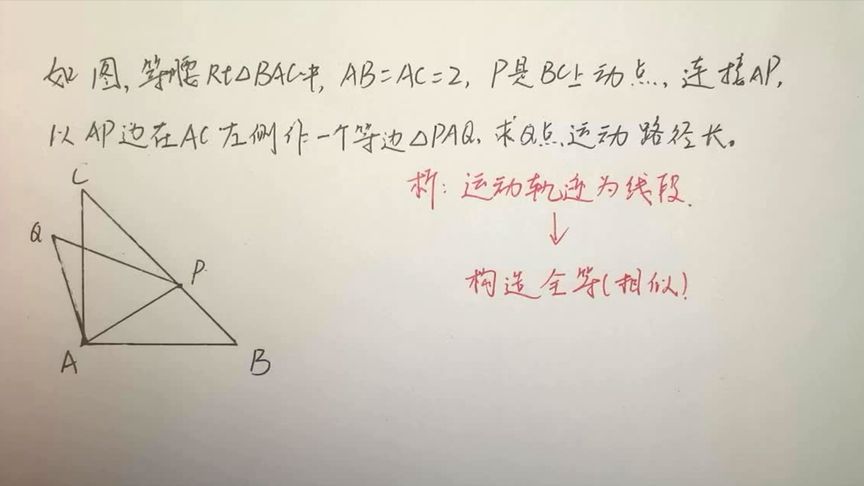 如图,等腰Rt△BAC中,AB=AC=2,P是BC上动点,连接AP,
以AP边在AC左侧作一个等边△PAQ,求Q点运动路径长。
析:运动轨迹为线段.
↓
构造全等(相似)
C
Q
P
A
B